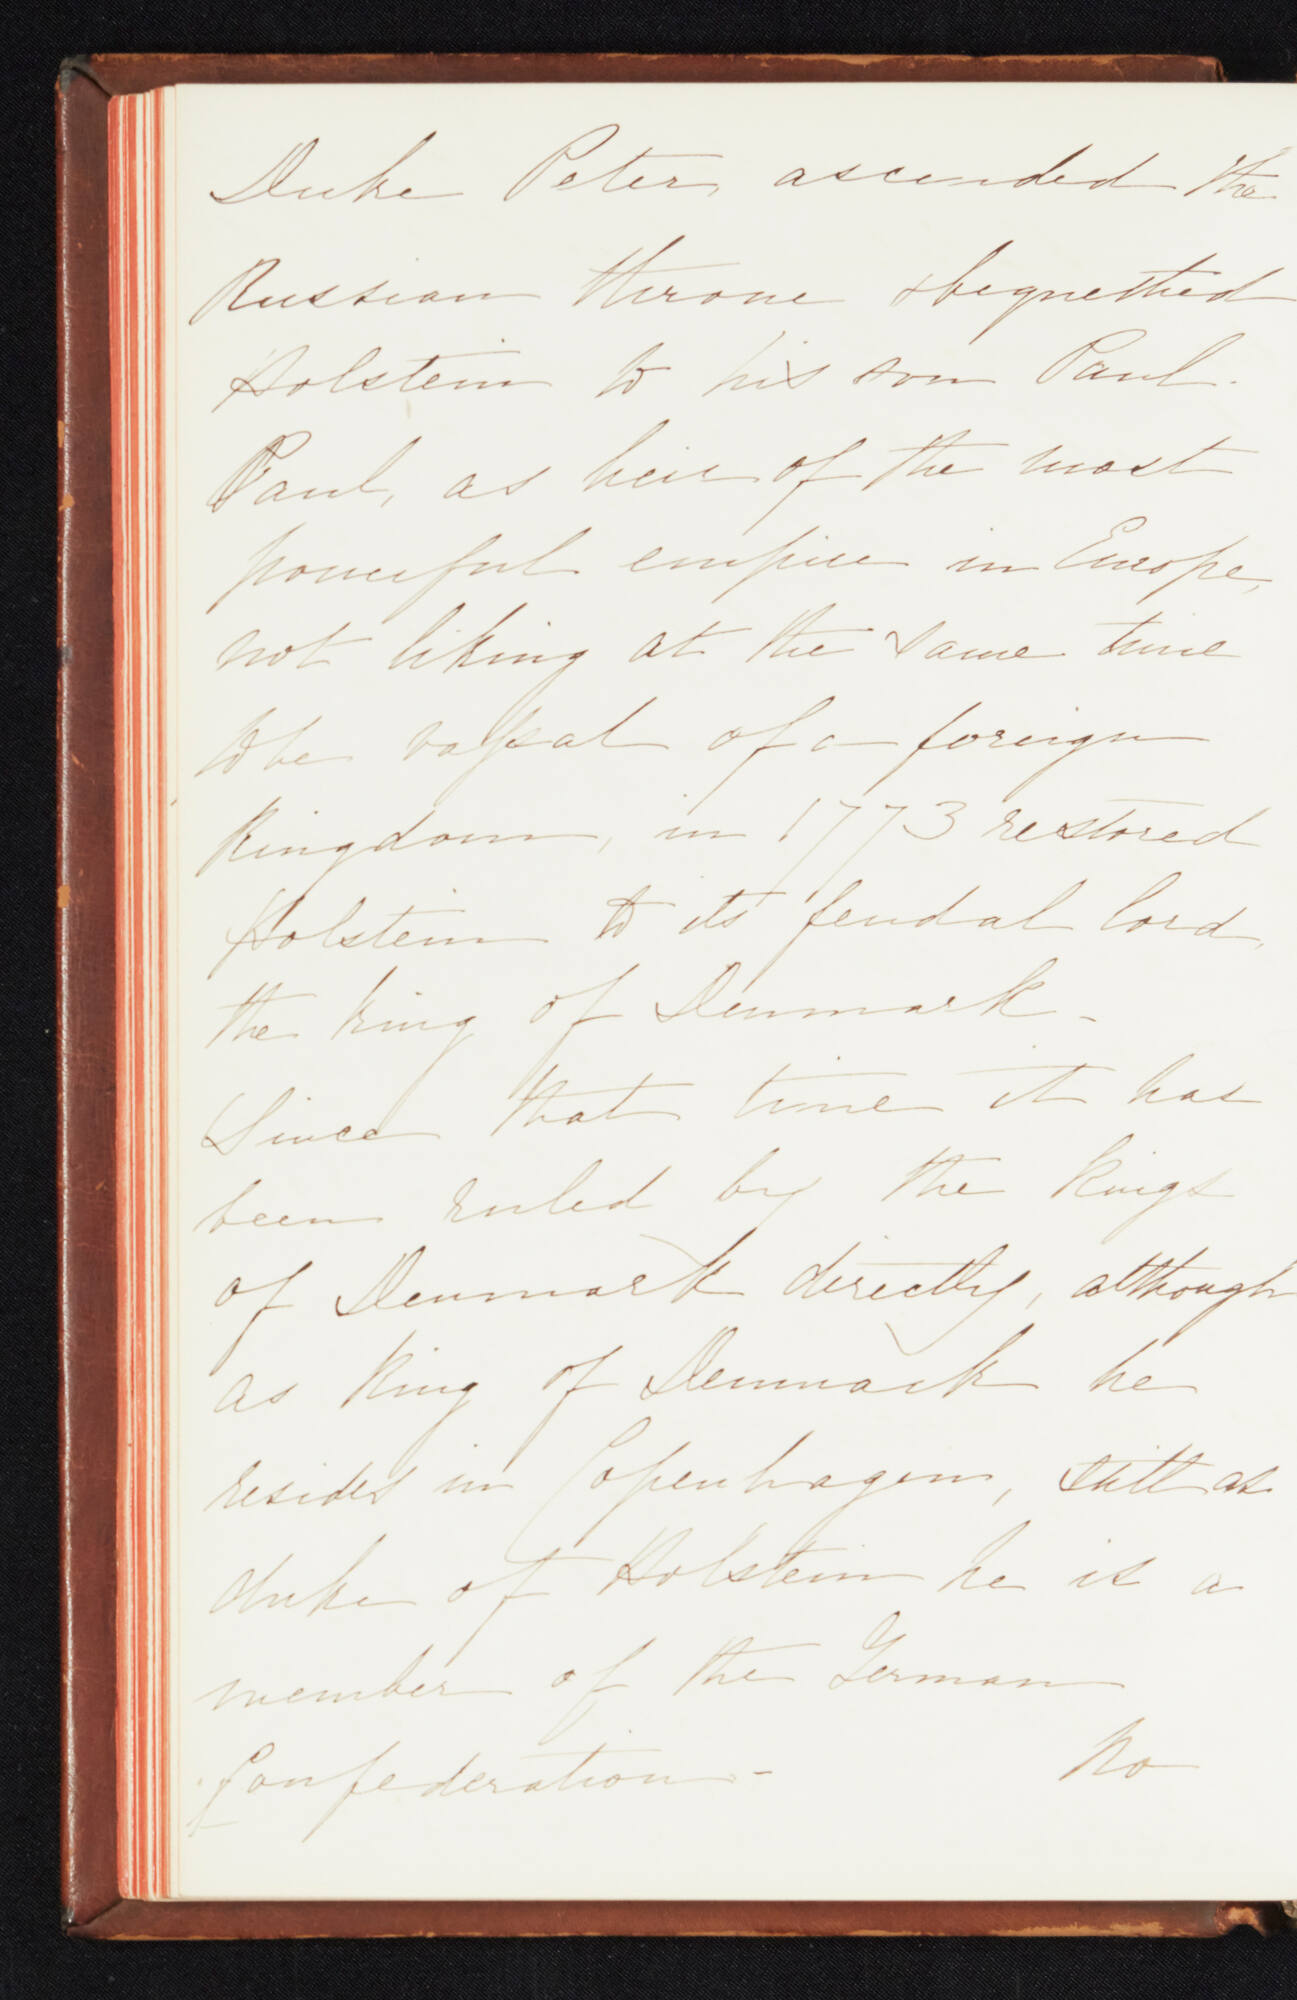 Duke Peter, ascended the
Russian throne & bequethed
Holstein to his son Paul.
Paul, as heir of the most
powerful empire in Europe,
not liking at the same time
to be vassal of a foreign
kingdom, in 1773 restored
Holstein to its feudal lord,
the king of Denmark -
Since that time it has
been ruled by the kings
of Denmark directly, although
as king of Denmark he
resides in Copenhagen, still as
duke of Holstein he is a
member of the German
Confederation - No